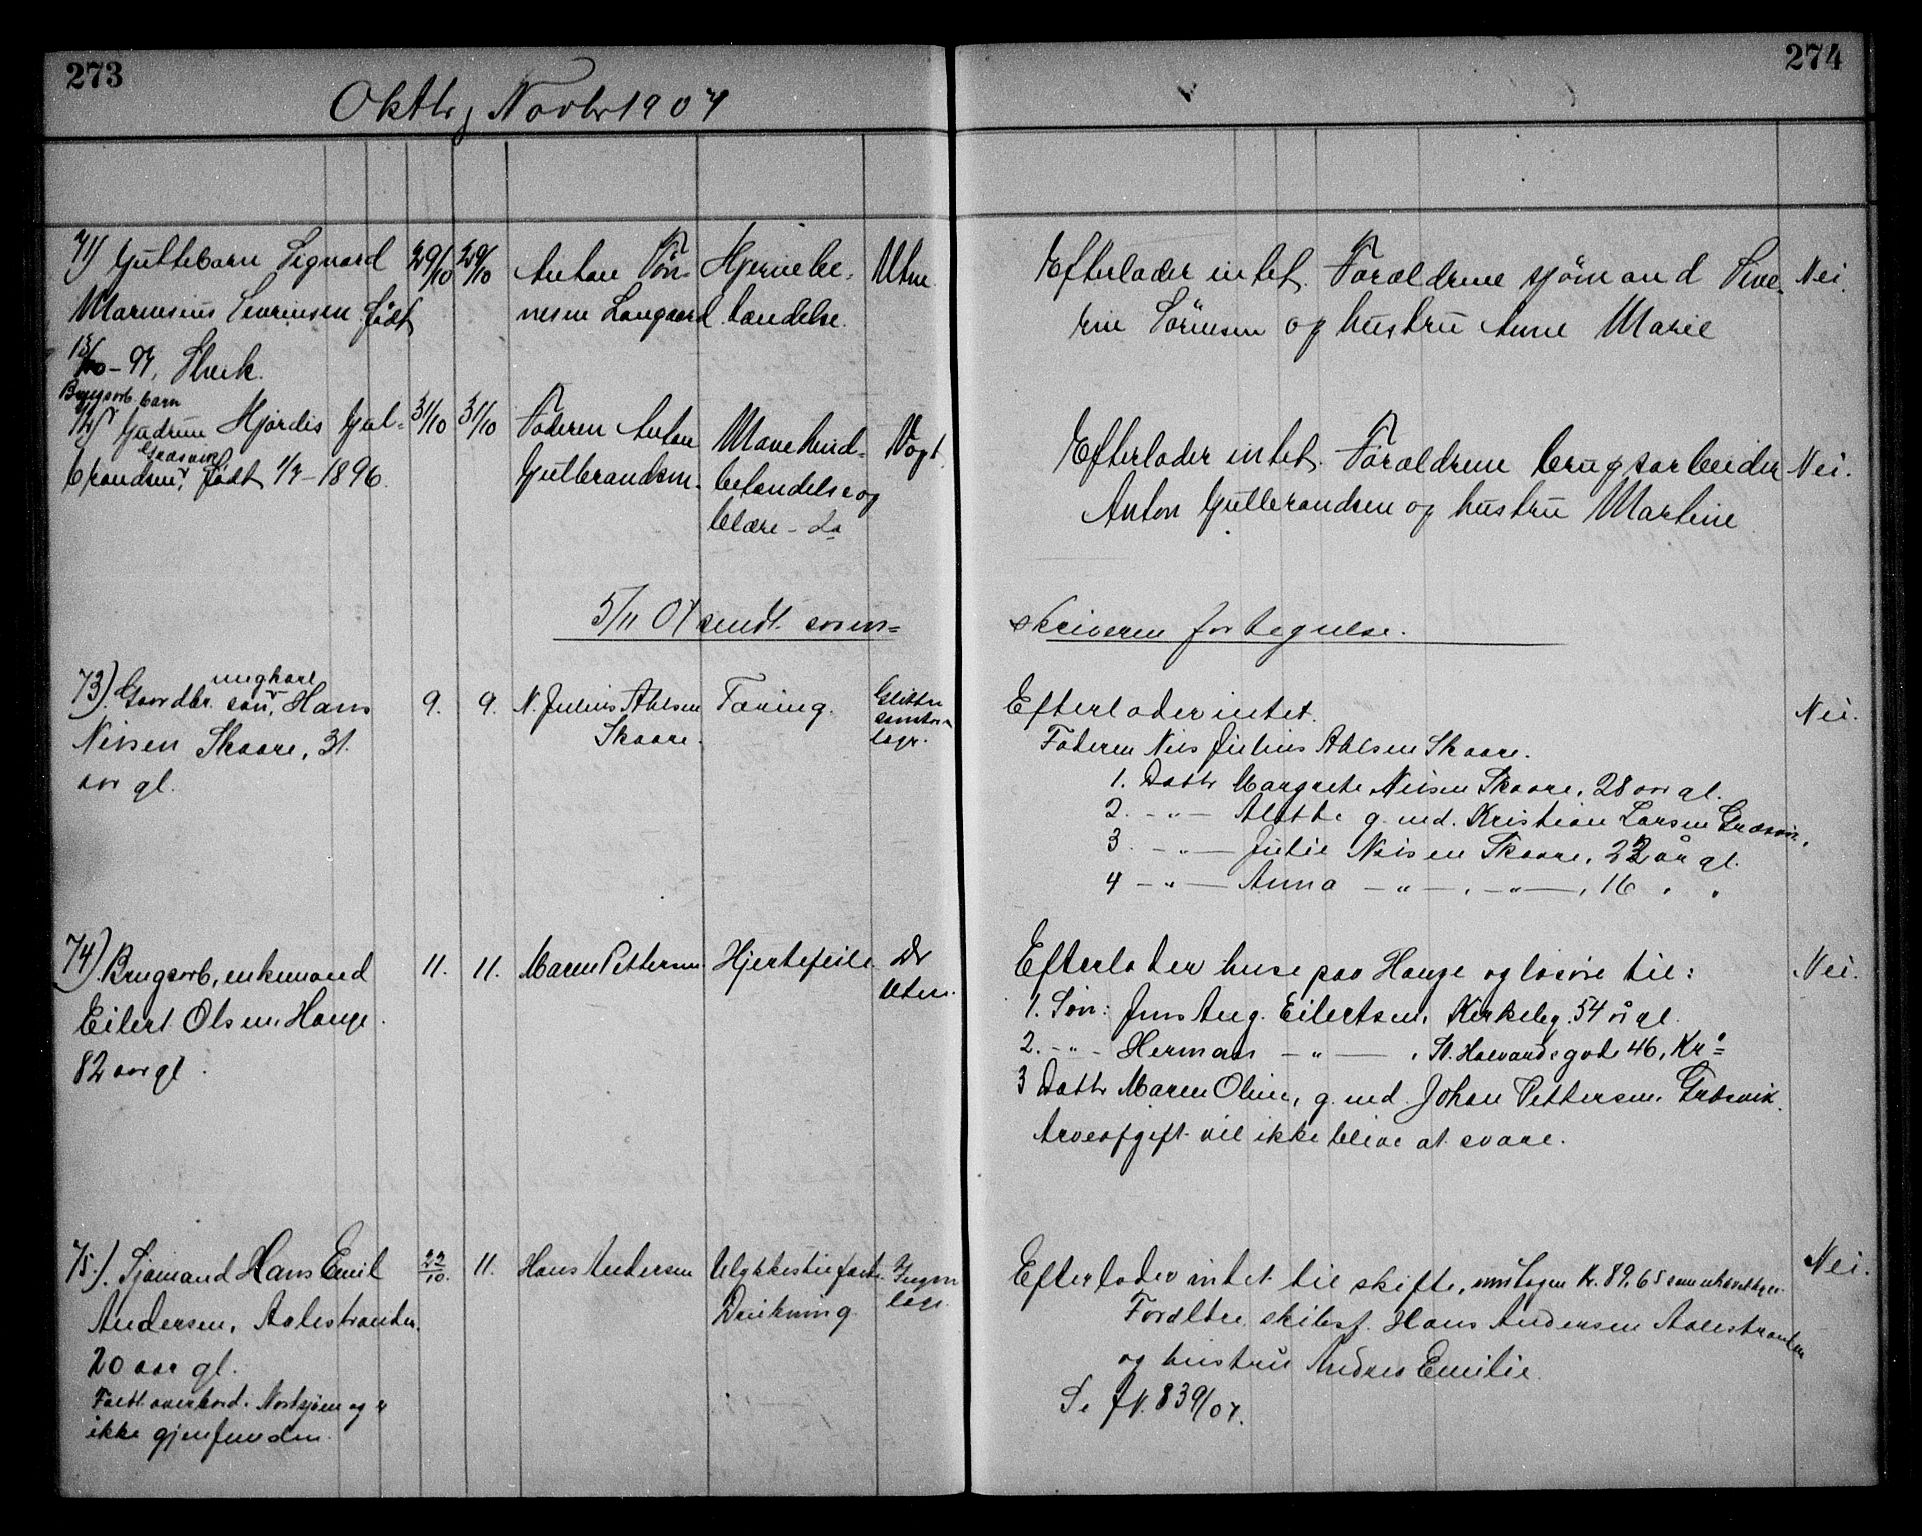 273
Oktbr, Novbr 1907
274
71) Guttebarn Sigvard
Marensius Sevrinsen født
13/10 - 97, Slevik.
29/10
29/10
Anton Tön-
nesen Langaard
Hjernebe-
tændelse.
Utne
Efterlader intet. Forældrene sjömand Seve-
rin Sörensen og hustru Anne Marie
Nei.
Brugsarb. barn
72) Gudrun Hjørdis Gul-
Græsvik
brandsen, født 1/7 - 1896.
31/10
31/10
Faderen Anton
Gulbrandsen.
Mavehind-
betændelse og
blære - do
Vogt.
Efterlader intet. Forældrene brugsarbeider
Anton Gulbrandsen og hustru Martine
Nei.
5/11 07 sendt soren-
skriveren fortegnelse.
ungkarl
73). Gaardbr. søn, Hans
Nilsen Skaare, 31
aar gl.
9.
9.
N. Julius Ahlsen
Skaare.
Tæring.
Glittre
sanator.
læge.
Efterlader intet.
Faderen Nils Julius Ahlsen Skaare.
1. Dattr Margrete Nilsen Skaare, 28 aar gl.
2. - " - Alette g. med. Kristian Larsen Græsvik,
3. - " - Julie Nilsen Skaare, 22 år gl.
4 - " - Anna - " - , - " - , 16 " "
Nei.
74) Brugsarb, enkemand
Eilert Olsen, Hauge.
82 aar gl.
11.
11.
Maren Pettersen
Hjertefeil.
Dr
Utne.
Efterlader huse paa Hauge og løsøre til:
1. Søn: Jens Aug. Eilertsen, Kirkeby. 54 år gl.
2. - " - Herman - " - , St. Halvardsgade 46, Kra
3 Dattr Maren Oline, g. med. Johan Pettersen, Græsvik.
Arveafgift vil ikke blive at svare.
Nei.
75.). Sjømand Hans Emil
Andersen, Aalestranden.
20 aar gl.
Faldt overbord i Nordsjøen og
ikke gjenfunden.
22/10.
11.
Hans Andersen
Ulykkestilfælde
Drukning.
Ingen
læge.
Efterlader intet til skifte, undtagen Kr. 89,65 som
Forældre skibsf. Hans Andersen Aalestranden
og hustru Andrea Emilie.
Se jN. 839/07.
Nei.